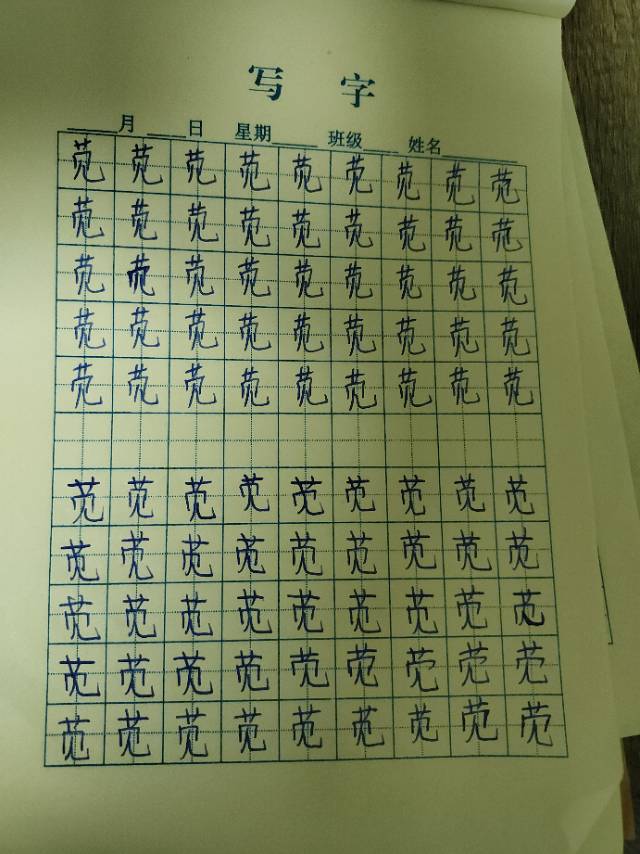 写 字
____月____日 星期____ 班级____ 姓名________
苋 苋 苋 苋 苋 苋 苋 苋 苋
苋 苋 苋 苋 苋 苋 苋 苋 苋
苋 苋 苋 苋 苋 苋 苋 苋 苋
苋 苋 苋 苋 苋 苋 苋 苋 苋
苋 苋 苋 苋 苋 苋 苋 苋 苋
苋 苋 苋 苋 苋 苋 苋 苋 苋
苋 苋 苋 苋 苋 苋 苋 苋 苋
苋 苋 苋 苋 苋 苋 苋 苋 苋
苋 苋 苋 苋 苋 苋 苋 苋 苋
苋 苋 苋 苋 苋 苋 苋 苋 苋